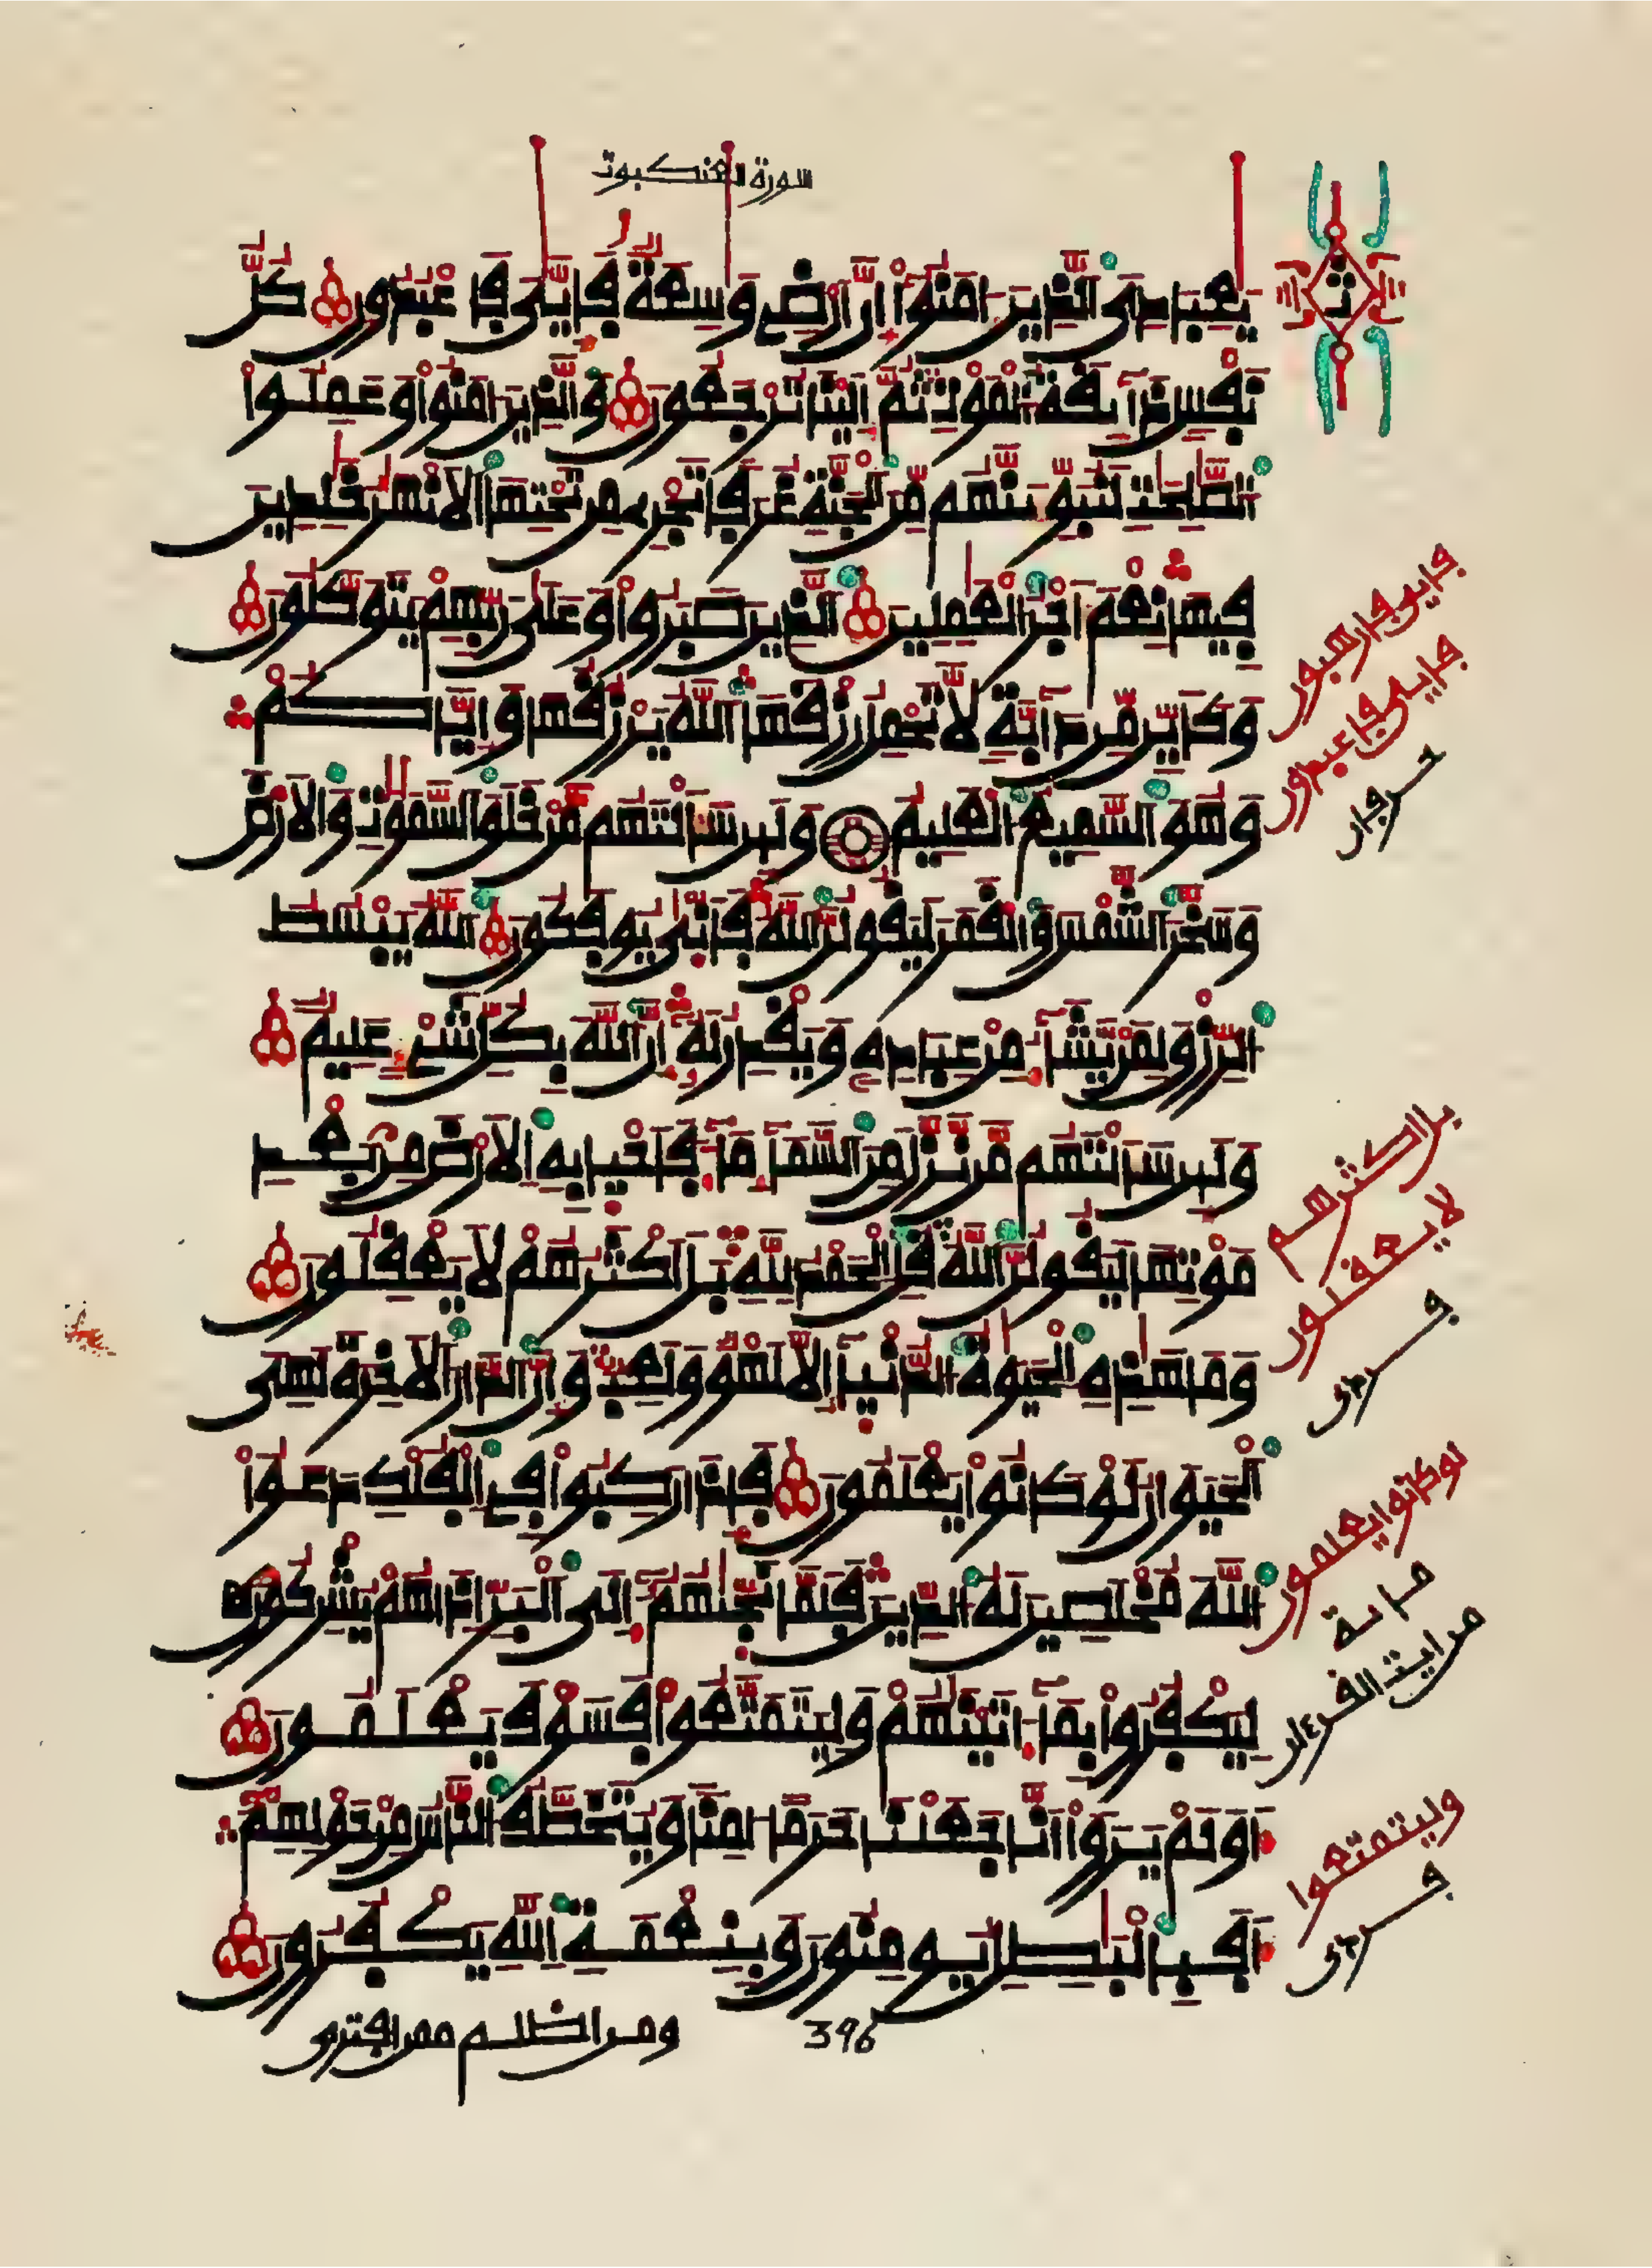 سورة العنكبوت
يعبادي الذين ءامنوا إن أرضي وسعة فإيي فاعبدون كل
نفس ذآئقة الموت ثم إلينا ترجعون والذين ءامنوا وعملوا
الصلحت لنبوئنهم من الجنة غرفا تجري من تحتها الانهر خلدين
فيها نعم أجر العملين الذين صبروا وعلى ربهم يتوكلون
وكأين من دآبة لا تحمل رزقها الله يرزقها وإياكم
وهو السميع العليم ولئن سألتهم من خلق السموت والارض
وسخر الشمس والقمر ليقولن الله فأنى يوفكون الله يبسط
الرزق لمن يشآء من عباده ويقدر له إن الله بكل شيء عليم
ولئن سألتهم من نزل من السمآء مآء فأحيا به الارض من بعد
موتها ليقولن الله قل الحمد لله بل أكثرهم لا يعقلون
وما هذه الحيوة الدنيآ إلا لهو ولعب وإن الدار الاخرة لهي
الحيوان لو كانوا يعلمون فإذا ركبوا في الفلك دعوا
الله مخلصين له الدين فلما نجيهم إلى البر إذا هم يشركون
ليكفروا بمآ ءاتينهم وليتمتعوا فسوف يعلمون
أولم يروا انا جعلنا حرما ءامنا ويتخطف الناس من حولهم
أفبالبطل يومنون وبنعمة الله يكفرون
ث
فإيي فارهبون
فإيي فاعبدون
بل اكثرهم
لا يعقلون
لو كانوا يعلمون
وليتمتعوا
ومن اظلم ممن افترى
396